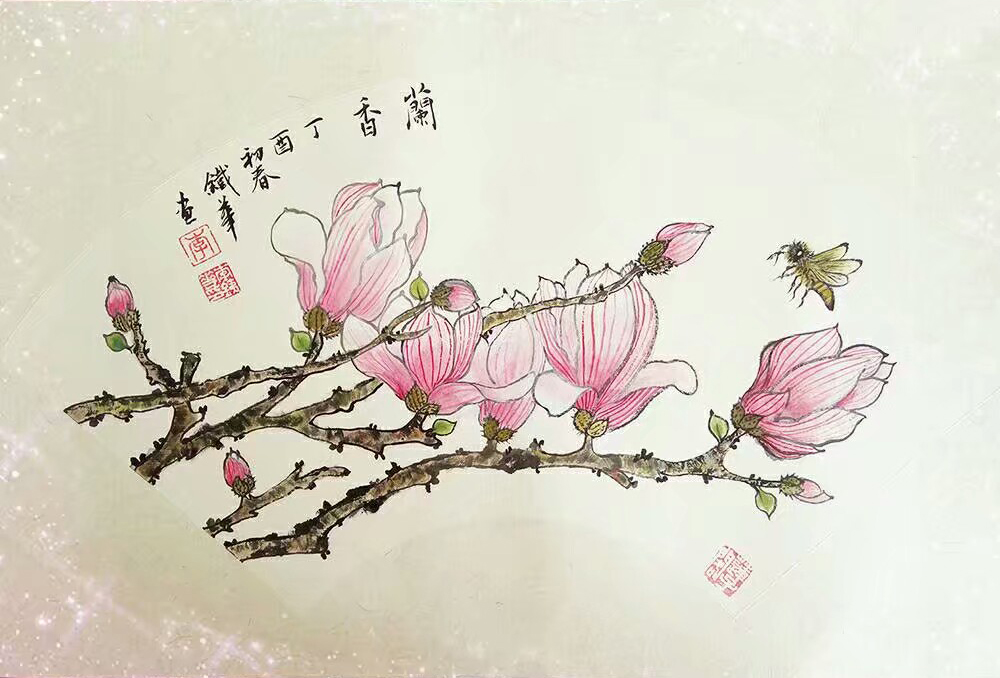 蘭香丁酉初春鐵華畫
李